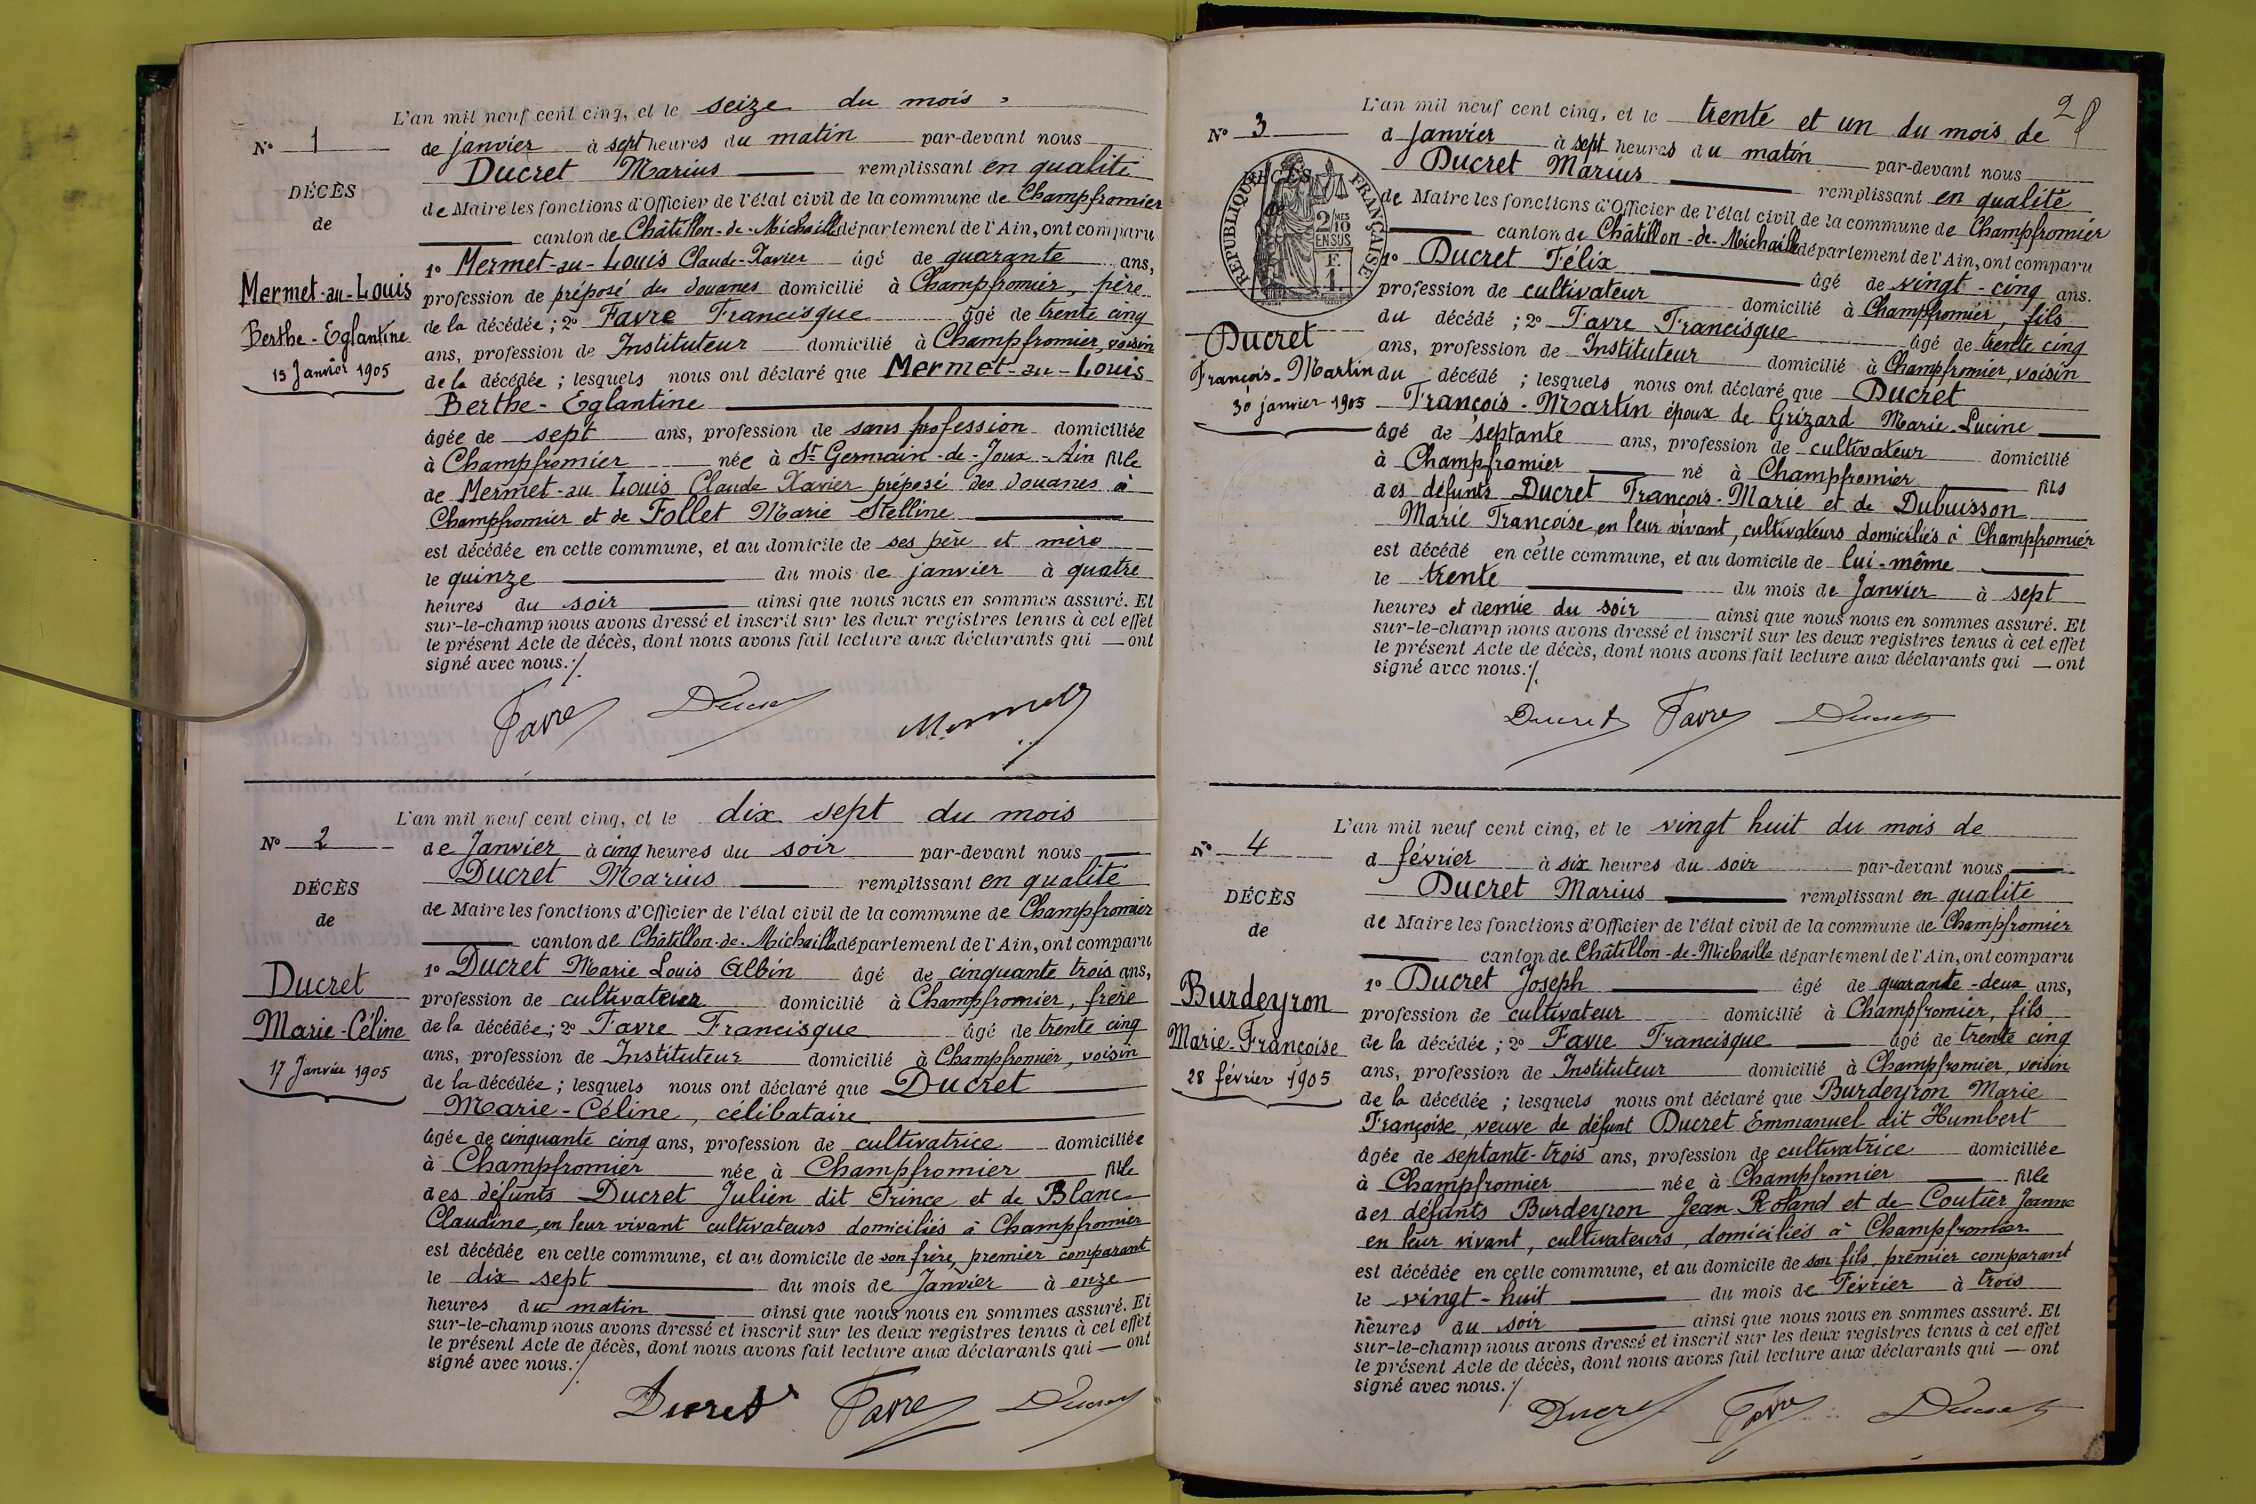 L'an mil neuf cent cinq, et le seize du mois
N° 1
de janvier à sept heures du matin par-devant nous
Ducret Marius remplissant en qualité
DÉCÈS
de Maire les fonctions d'Officier de l'état civil de la commune de Champfromier
de
canton de Châtillon-de-Michaille département de l'Ain, ont comparu
1° Mermet-au-Louis Claude-Xavier âgé de quarante ans,
Mermet-au-Louis
profession de préposé des douanes domicilié à Champfromier, père
de la décédée ; 2° Favre Francisque âgé de trente cinq
Berthe-Eglantine
ans, profession de Instituteur domicilié à Champfromier, voisin
15 Janvier 1905
de la décédée ; lesquels nous ont déclaré que Mermet-au-Louis
Berthe-Eglantine
âgée de sept ans, profession de sans profession domiciliée
à Champfromier née à St Germain-de-Joux-Ain fille
de Mermet-au Louis Claude Xavier préposé des douanes à
Champfromier et de Follet Marie Stelline
est décédée en cette commune, et au domicile de ses père et mère
le quinze du mois de janvier à quatre
heures du soir ainsi que nous nous en sommes assuré. Et
sur-le-champ nous avons dressé et inscrit sur les deux registres tenus à cet effet
le présent Acte de décès, dont nous avons fait lecture aux déclarants qui — ont
signé avec nous./.
Favre Ducret Mermet
L'an mil neuf cent cinq, et le dix sept du mois
N° 2
de Janvier à cinq heures du soir par-devant nous
Ducret Marius remplissant en qualité
DÉCÈS
de Maire les fonctions d'Officier de l'état civil de la commune de Champfromier
de
canton de Châtillon-de-Michaille département de l'Ain, ont comparu
1° Ducret Marie Louis Albin âgé de cinquante trois ans,
Ducret
profession de cultivateur domicilié à Champfromier, frère
Marie-Céline
de la décédée ; 2° Favre Francisque âgé de trente cinq
ans, profession de Instituteur domicilié à Champfromier, voisin
17 Janvier 1905
de la décédée ; lesquels nous ont déclaré que Ducret
Marie-Céline, célibataire
âgée de cinquante cinq ans, profession de cultivatrice domiciliée
à Champfromier née à Champfromier fille
des défunts Ducret Julien dit Prince et de Blanc
Claudine, en leur vivant cultivateurs domiciliés à Champfromier
est décédée en cette commune, et au domicile de son frère, premier comparant
le dix sept du mois de Janvier à onze
heures du matin ainsi que nous nous en sommes assuré. Et
sur-le-champ nous avons dressé et inscrit sur les deux registres tenus à cet effet
le présent Acte de décès, dont nous avons fait lecture aux déclarants qui — ont
signé avec nous./.
Ducret Favre Ducret
2
L'an mil neuf cent cinq, et le trente et un du mois de
N° 3
d janvier à sept heures du matin par-devant nous
Ducret Marius remplissant en qualité
DÉCÈS
de
RÉPUBLIQUE FRANÇAISE
2/10 MES
EN SUS
F.
1
de Maire les fonctions d'Officier de l'état civil de la commune de Champfromier
canton de Châtillon-de-Michaille département de l'Ain, ont comparu
1° Ducret Félix âgé de vingt-cinq ans.
profession de cultivateur domicilié à Champfromier, fils
du décédé ; 2° Favre Francisque âgé de trente cinq
Ducret
ans, profession de Instituteur domicilié à Champfromier, voisin
François-Martin
du décédé ; lesquels nous ont déclaré que Ducret
30 janvier 1905
François-Martin époux de Grizard Marie-Lucine
âgé de septante ans, profession de cultivateur domicilié
à Champfromier né à Champfromier fils
des défunts Ducret François-Marie et de Dubuisson
Marie Françoise, en leur vivant, cultivateurs domiciliés à Champfromier
est décédé en cette commune, et au domicile de lui-même
le trente du mois de Janvier à sept
heures et demie du soir ainsi que nous nous en sommes assuré. Et
sur-le-champ nous avons dressé et inscrit sur les deux registres tenus à cet effet
le présent Acte de décès, dont nous avons fait lecture aux déclarants qui — ont
signé avec nous./.
Ducret Favre Ducret
L'an mil neuf cent cinq, et le vingt huit du mois de
N° 4
d février à six heures du soir par-devant nous
Ducret Marius remplissant en qualité
DÉCÈS
de Maire les fonctions d'Officier de l'état civil de la commune de Champfromier
de
canton de Châtillon-de-Michaille département de l'Ain, ont comparu
1° Ducret Joseph âgé de quarante-deux ans,
Burdeyron
profession de cultivateur domicilié à Champfromier, fils
Marie-Françoise
de la décédée ; 2° Favre Francisque âgé de trente cinq
ans, profession de Instituteur domicilié à Champfromier, voisin
28 février 1905
de la décédée ; lesquels nous ont déclaré que Burdeyron Marie
Françoise, veuve de défunt Ducret Emmanuel dit Humbert
âgée de septante-trois ans, profession de cultivatrice domiciliée
à Champfromier née à Champfromier fille
des défunts Burdeyron Jean Roland et de Coutier Jeanne
en leur vivant, cultivateurs, domiciliés à Champfromier
est décédée en cette commune, et au domicile de son fils premier comparant
le vingt-huit du mois de Février à trois
heures du soir ainsi que nous nous en sommes assuré. Et
sur-le-champ nous avons dressé et inscrit sur les deux registres tenus à cet effet
le présent Acte de décès, dont nous avons fait lecture aux déclarants qui — ont
signé avec nous./.
Ducret Favre Ducret